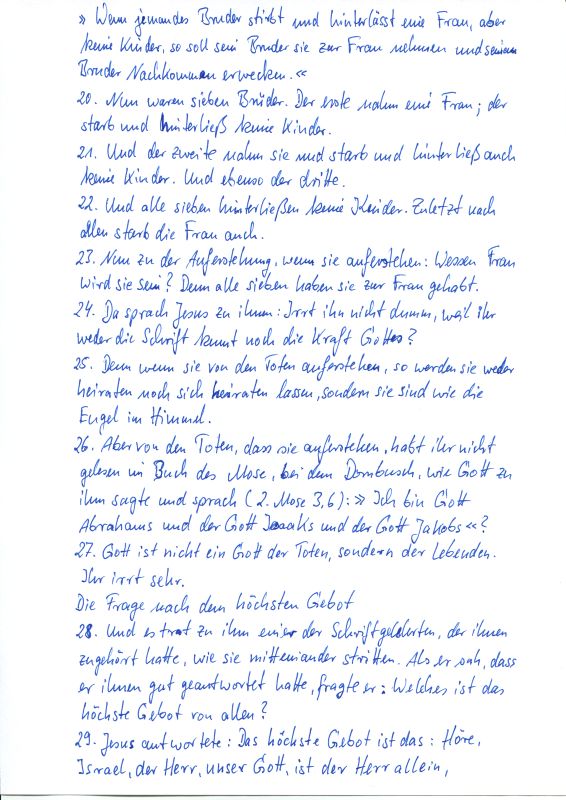 » Wenn jemandes Bruder stirbt und hinterlässt eine Frau, aber
keine Kinder, so soll sein Bruder sie zur Frau nehmen und seinem
Bruder Nachkommen erwecken. «
20. Nun waren sieben Brüder. Der erste nahm eine Frau; der
starb und hinterließ keine Kinder.
21. Und der zweite nahm sie und starb und hinterließ auch
keine Kinder. Und ebenso der dritte.
22. Und alle sieben hinterließen keine Kinder. Zuletzt nach
allen starb die Frau auch.
23. Nun zu der Auferstehung, wenn sie auferstehen: Wessen Frau
wird sie sein? Denn alle sieben haben sie zur Frau gehabt.
24. Da sprach Jesus zu ihnen: Irrt ihr nicht darum, weil ihr
weder die Schrift kennt noch die Kraft Gottes?
25. Denn wenn sie von den Toten auferstehen, so werden sie weder
heiraten noch sich heiraten lassen, sondern sie sind wie die
Engel im Himmel.
26. Aber von den Toten, dass sie auferstehen, habt ihr nicht
gelesen im Buch des Mose, bei dem Dornbusch, wie Gott zu
ihm sagte und sprach (2. Mose 3,6): » Ich bin Gott
Abrahams und der Gott Isaaks und der Gott Jakobs «?
27. Gott ist nicht ein Gott der Toten, sondern der Lebenden.
Ihr irrt sehr.
Die Frage nach dem höchsten Gebot
28. Und es trat zu ihm einer der Schriftgelehrten, der ihnen
zugehört hatte, wie sie miteinander stritten. Als er sah, dass
er ihnen gut geantwortet hatte, fragte er: Welches ist das
höchste Gebot von allen?
29. Jesus antwortete: Das höchste Gebot ist das: Höre,
Israel, der Herr, unser Gott, ist der Herr allein,